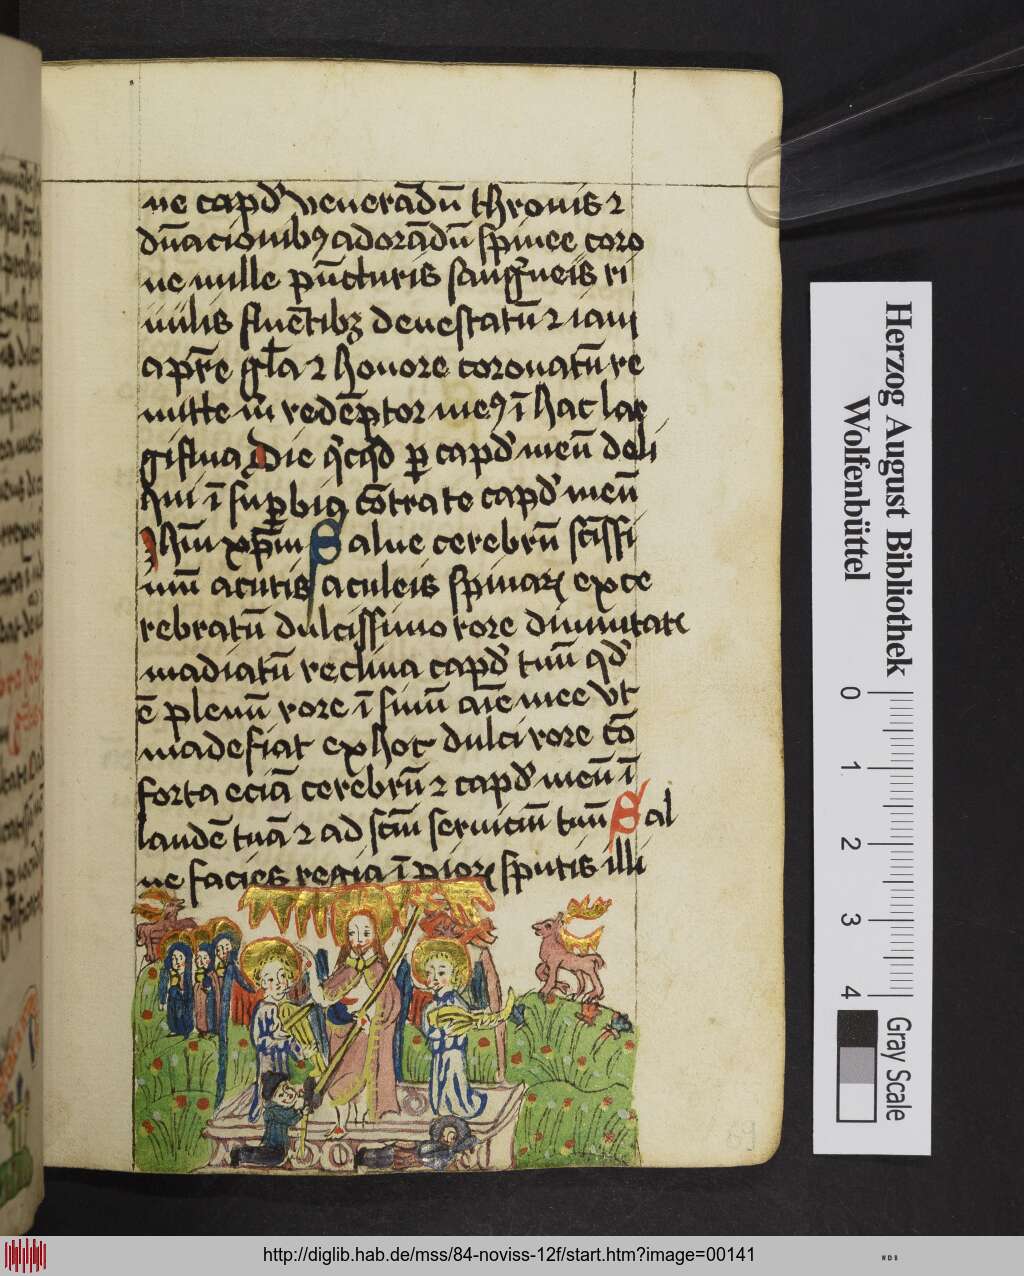 ue capd' venerādū thronis ⁊
dūacionibꝯ adorādū spinee coro
ne mille pūcturis sangͥneis ri
uulis fluētibꝫ deuestatū ⁊ iam
a pr̄e gl̄a ⁊ honore coronatū re
mitte m̄ redēptor meꝯ ī hac lar
giflua die qͥcqͥd ꝑ capd' meū deli
qui ī suꝑbiꝯ cōtra te capd' meū
ihm̄ xp̄m Salue cerebrū sc̄issi
mū acutis aculeis spinaꝝ exce
rebratū dulcissimo rore diuinitatꝭ
madiatū reclina capd' tuū qd'
ē plenū rore ī sinū aīe mee vt
madefiat ex hoc dulci rore cō
forta eciā cerebrū ⁊ capd' meū ī
laudē tuā ⁊ ad sc̄m seruiciū tuū Sal
ue facies regia ī pioꝝ sputis illi
69
Herzog August Bibliothek
Wolfenbüttel
0 1 2 3 4
Gray Scale
http://diglib.hab.de/mss/84-noviss-12f/start.htm?image=00141